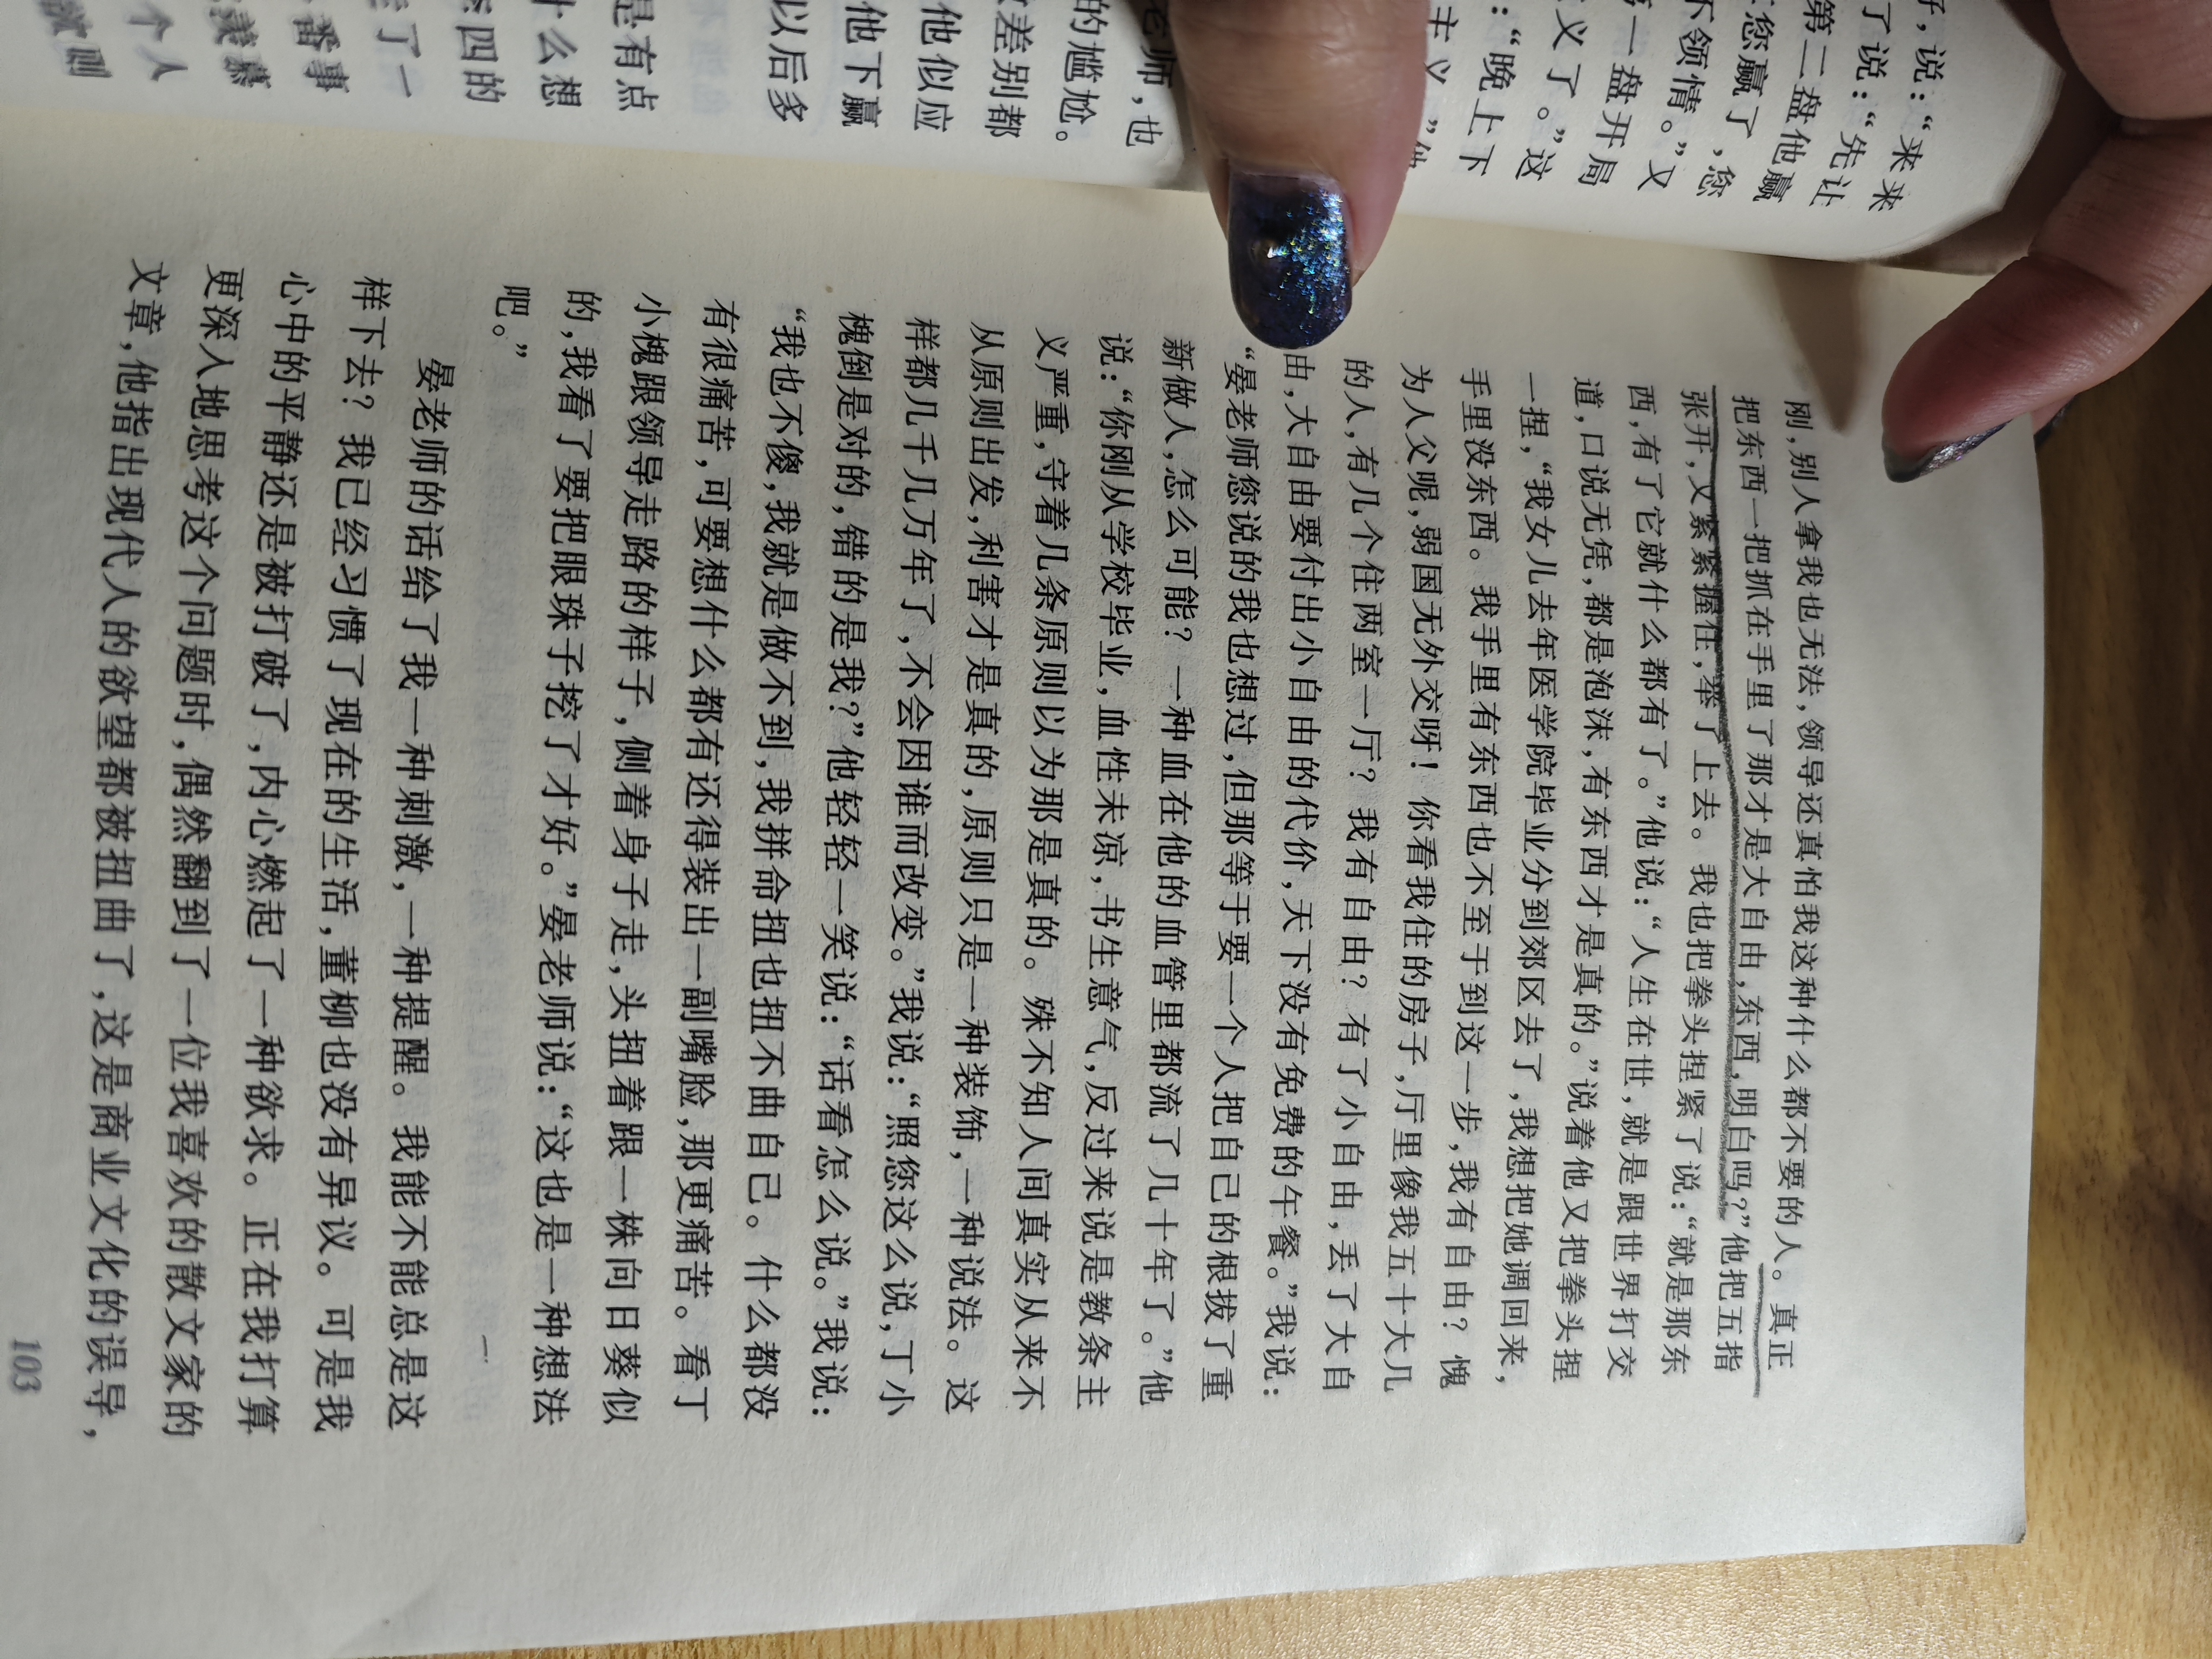 好，说：“来来
了说：“先让
第二盘他赢
您赢了，您
不领情。”又
一盘开局
义了。”这
：“晚上下
主义，”他
老师，也
的尴尬。
差别都
他似应
他下赢
以后多
是有点
什么想
四的
了一
番事
个人
刚，别人拿我也无法，领导还真怕我这种什么都不要的人。真正
把东西一把抓在手里了那才是大自由，东西，明白吗？”他把五指
张开，又紧紧握住，举了上去。我也把拳头捏紧了说：“就是那东
西，有了它就什么都有了。”他说：“人生在世，就是跟世界打交
道，口说无凭，都是泡沫，有东西才是真的。”说着他又把拳头捏
一捏，“我女儿去年医学院毕业分到郊区去了，我想把她调回来，
手里没东西。我手里有东西也不至于到这一步，我有自由？愧
为人父呢，弱国无外交呀！你看我住的房子，厅里像我五十大几
的人，有几个住两室一厅？我有自由？有了小自由，丢了大自
由，大自由要付出小自由的代价，天下没有免费的午餐。”我说：
“晏老师您说的我也想过，但那等于要一个人把自己的根拔了重
新做人，怎么可能？一种血在他的血管里都流了几十年了。”他
说：“你刚从学校毕业，血性未凉，书生意气，反过来说是教条主
义严重，守着几条原则以为那是真的。殊不知人间真实从来不
从原则出发，利害才是真的，原则只是一种装饰，一种说法。这
样都几千几万年了，不会因谁而改变。”我说：“照您这么说，丁小
槐倒是对的，错的是我？”他轻轻一笑说：“话看怎么说。”我说：
“我也不傻，我就是做不到，我拼命扭也扭不曲自己。什么都没
有很痛苦，可要想什么都有还得装出一副嘴脸，那更痛苦。看丁
小槐跟领导走路的样子，侧着身子走，头扭着跟一株向日葵似
的，我看了要把眼珠子挖了才好。”晏老师说：“这也是一种想法
吧。”
晏老师的话给了我一种刺激，一种提醒。我能不能总是这
样下去？我已经习惯了现在的生活，董柳也没有异议。可是我
心中的平静还是被打破了，内心燃起了一种欲求。正在我打算
更深入地思考这个问题时，偶然翻到了一位我喜欢的散文家的
文章，他指出现代人的欲望都被扭曲了，这是商业文化的误导，
103